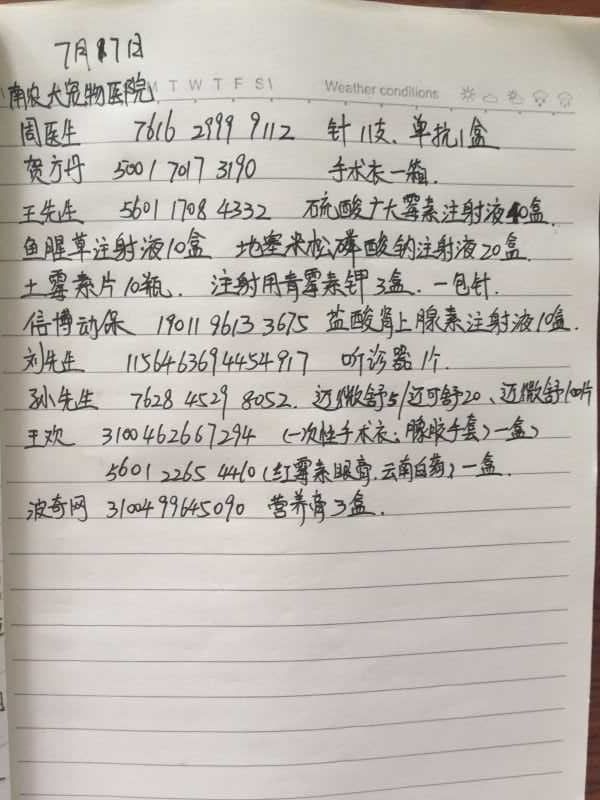 7月17日
南农大宠物医院 M T W T F S Weather conditions
周医生 7616 2999 9112 针11支、单抗1盒
贺方丹 5001 7017 3190 手术衣一箱.
王先生 5601 1708 4332 硫酸庆大霉素注射液40盒.
鱼腥草注射液10盒 地塞米松磷酸钠注射液20盒.
土霉素片10瓶. 注射用青霉素钾3盒. 一包针.
信博动保 19011 9613 3675 盐酸肾上腺素注射液10盒.
刘先生 1156463694454917 听诊器1个.
孙先生 7628 4529 8052. 迈微舒5/迈可舒20、迈微舒100片
王欢 3100462667294 (一次性手术衣;橡胶手套)一盒)
5601 2265 4460(红霉素眼膏.云南白药)一盒.
波奇网 3100499645090 营养膏3盒.